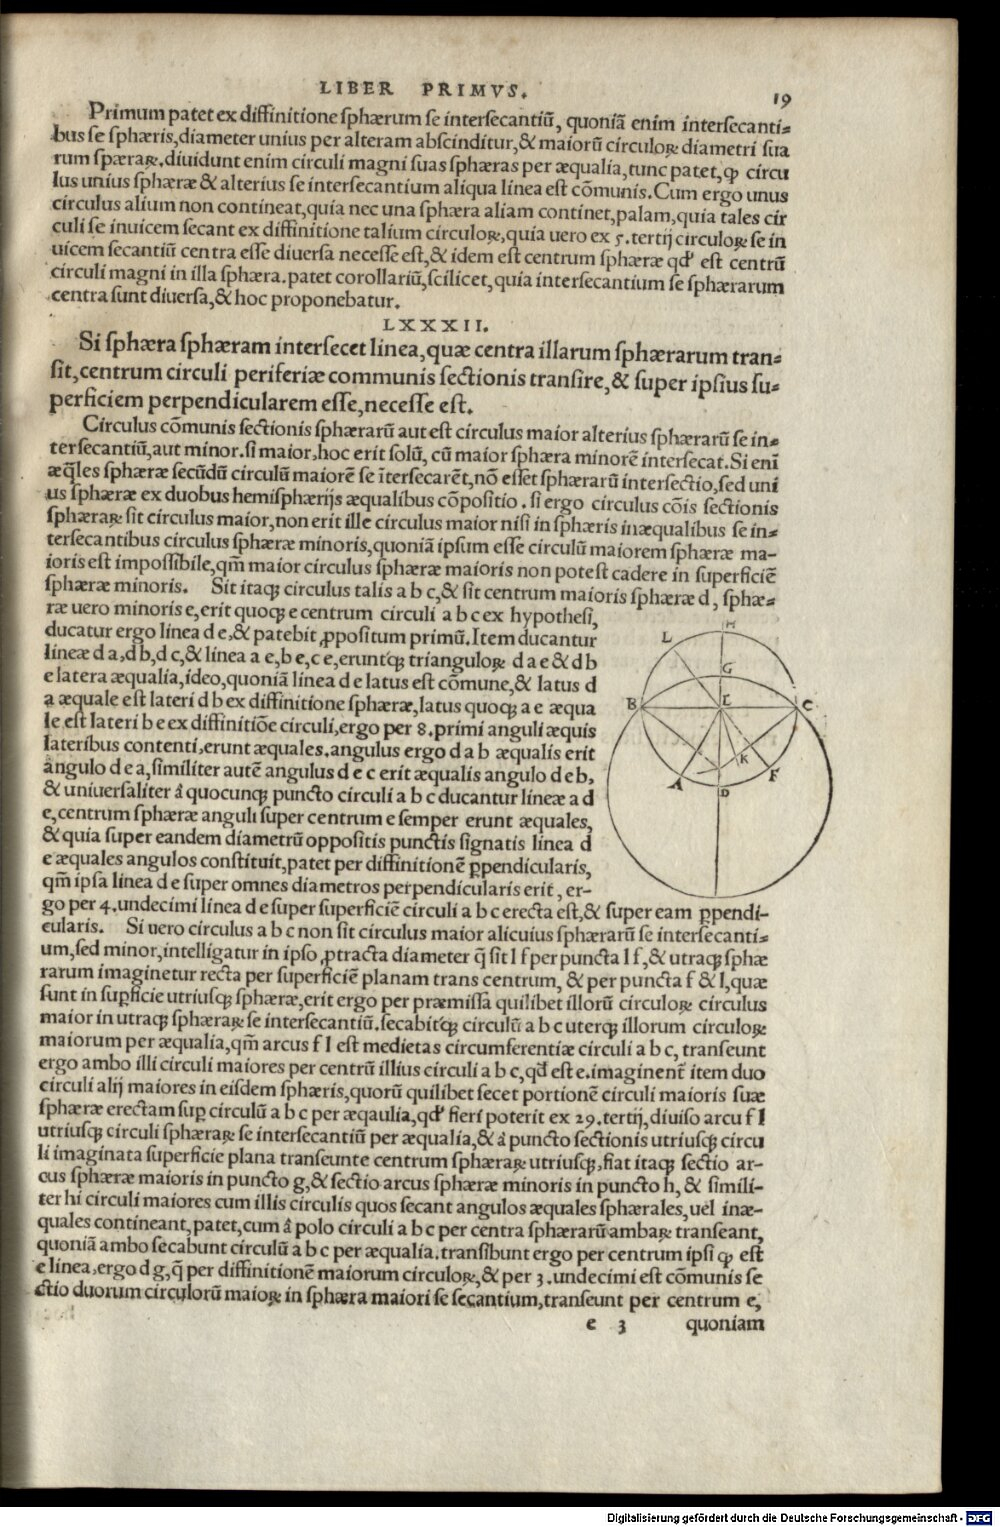 LIBER PRIMVS.
19
Primum patet ex diffinitione ſphærum ſe interſecantiũ, quoniã enim interſecanti=
bus ſe ſphæris,diameter unius per alteram abſcinditur,& maiorũ circuloꝝ diametri ſua
rum ſpæraꝝ.diuidunt enim circuli magni ſuas ſphæras per æqualia,tunc patet,ꝙ circu
lus unius ſphæræ & alterius ſe interſecantium aliqua linea eſt cõmunis.Cum ergo unus
circulus alium non contineat,quia nec una ſphæra aliam continet,palam,quia tales cir
culi ſe inuicem ſecant ex diffinitione talium circuloꝝ,quia uero ex 5.tertij circuloꝝ ſe in
uicem ſecantiũ centra eſſe diuerſa neceſſe eſt,& idem eſt centrum ſphæræ qđ eſt centrũ
circuli magni in illa ſphæra.patet corollariũ,ſcilicet,quia interſecantium ſe ſphærarum
centra ſunt diuerſa,& hoc proponebatur.
LXXXII.
Si ſphæra ſphæram interſecet linea,quæ centra illarum ſphærarum tran=
ſit,centrum circuli periferiæ communis ſectionis tranſire,& ſuper ipſius ſu=
perficiem perpendicularem eſſe,neceſſe eſt.
Circulus cõmunis ſectionis ſphærarũ aut eſt circulus maior alterius ſphærarũ ſe in=
terſecantiũ,aut minor.ſi maior,hoc erit ſolũ, cũ maior ſphæra minorẽ interſecat.Si enĩ
æq̃les ſphæræ ſecũdũ circulũ maiorẽ ſe ĩterſecarẽt,nõ eſſet ſphærarũ interſectio,ſed uni
us ſphæræ ex duobus hemiſphærijs æqualibus cõpoſitio. ſi ergo circulus cõis ſectionis
ſphæraꝝ ſit circulus maior,non erit ille circulus maior niſi in ſphæris inæqualibus ſe in=
terſecantibus circulus ſphæræ minoris,quoniã ipſum eſſe circulũ maiorem ſphæræ ma-
ioris eſt impoſſibile,qm̃ maior circulus ſphæræ maioris non poteſt cadere in ſuperficiẽ
ſphæræ minoris. Sit itaq; circulus talis a b c,& ſit centrum maioris ſphæræ d, ſphæ=
ræ uero minoris e,erit quoq; e centrum circuli a b c ex hypotheſi,
ducatur ergo linea d e,& patebit ꝓpoſitum primũ.Item ducantur
lineæ d a,d b,d c,& linea a e,b e,c e,eruntq́; triangulorꝝ d a e & d b
e latera æqualia,ideo,quoniã linea d e latus eſt cõmune,& latus d
a æquale eſt lateri d b ex diffinitione ſphæræ,latus quoq; a e æqua
le eſt lateri b e ex diffinitiõe circuli,ergo per 8.primi anguli æquis
lateribus contenti,erunt æquales.angulus ergo d a b æqualis erit
angulo d e a,ſimiliter autẽ angulus d e c erit æqualis angulo d e b,
& uniuerſaliter à quocunq; puncto circuli a b c ducantur lineæ a d
e,centrum ſphæræ anguli ſuper centrum e ſemper erunt æquales,
& quia ſuper eandem diametrũ oppoſitis punctis ſignatis linea d
e æquales angulos conſtituit,patet per diffinitionẽ ꝑpendicularis,
qm̃ ipſa linea d e ſuper omnes diametros perpendicularis erit, er-
go per 4.undecimi linea d e ſuper ſuperficiẽ circuli a b c erecta eſt,& ſuper eam ꝑpendi-
cularis. Si uero circulus a b c non ſit circulus maior alicuius ſphærarũ ſe interſecanti=
um,ſed minor,intelligatur in ipſo ꝓtracta diameter q̃ ſit l f per puncta l f,& utraq; ſphæ
rarum imaginetur recta per ſuperficiẽ planam trans centrum, & per puncta f & l,quæ
ſunt in ſuꝑficie utriuſq; ſphæræ,erit ergo per præmiſſa quilibet illorũ circuloꝝ circulus
maior in utraq; ſphæraꝝ ſe interſecantiũ.ſecabitq́; circulũ a b c uterq; illorum circuloꝝ
maiorum per æqualia,qm̃ arcus f l eſt medietas circumferentiæ circuli a b c, tranſeunt
ergo ambo illi circuli maiores per centrũ illius circuli a b c,qđ eſt e.imaginent̃ item duo
circuli alij maiores in eiſdem ſphæris,quorũ quilibet ſecet portionẽ circuli maioris ſuæ
ſphæræ erectam ſuꝑ circulũ a b c per æqaulia,qđ fieri poterit ex 29.tertij,diuiſo arcu f l
utriuſq; circuli ſphæraꝝ ſe interſecantiũ per æqualia,& à puncto ſectionis utriuſq; circu
li imaginata ſuperficie plana tranſeunte centrum ſphæraꝝ utriuſq;,fiat itaq; ſectio ar-
cus ſphæræ maioris in puncto g,& ſectio arcus ſphæræ minoris in puncto h, & ſimili-
ter hi circuli maiores cum illis circulis quos ſecant angulos æquales ſphærales,uel inæ-
quales contineant,patet,cum à polo circuli a b c per centra ſphærarũ ambaꝝ tranſeant,
quoniã ambo ſecabunt circulũ a b c per æqualia.tranſibunt ergo per centrum ipſi ꝙ eſt
e linea,ergo d g,q̃ per diffinitionẽ maiorum circuloꝝ,& per 3.undecimi eſt cõmunis ſe
ctio duorum circulorũ maioꝝ in ſphæra maiori ſe ſecantium,tranſeunt per centrum e,
e 3 quoniam
H
L
G
B
L
C
K
A
F
D
Digitalisierung gefördert durch die Deutsche Forschungsgemeinschaft - DFG